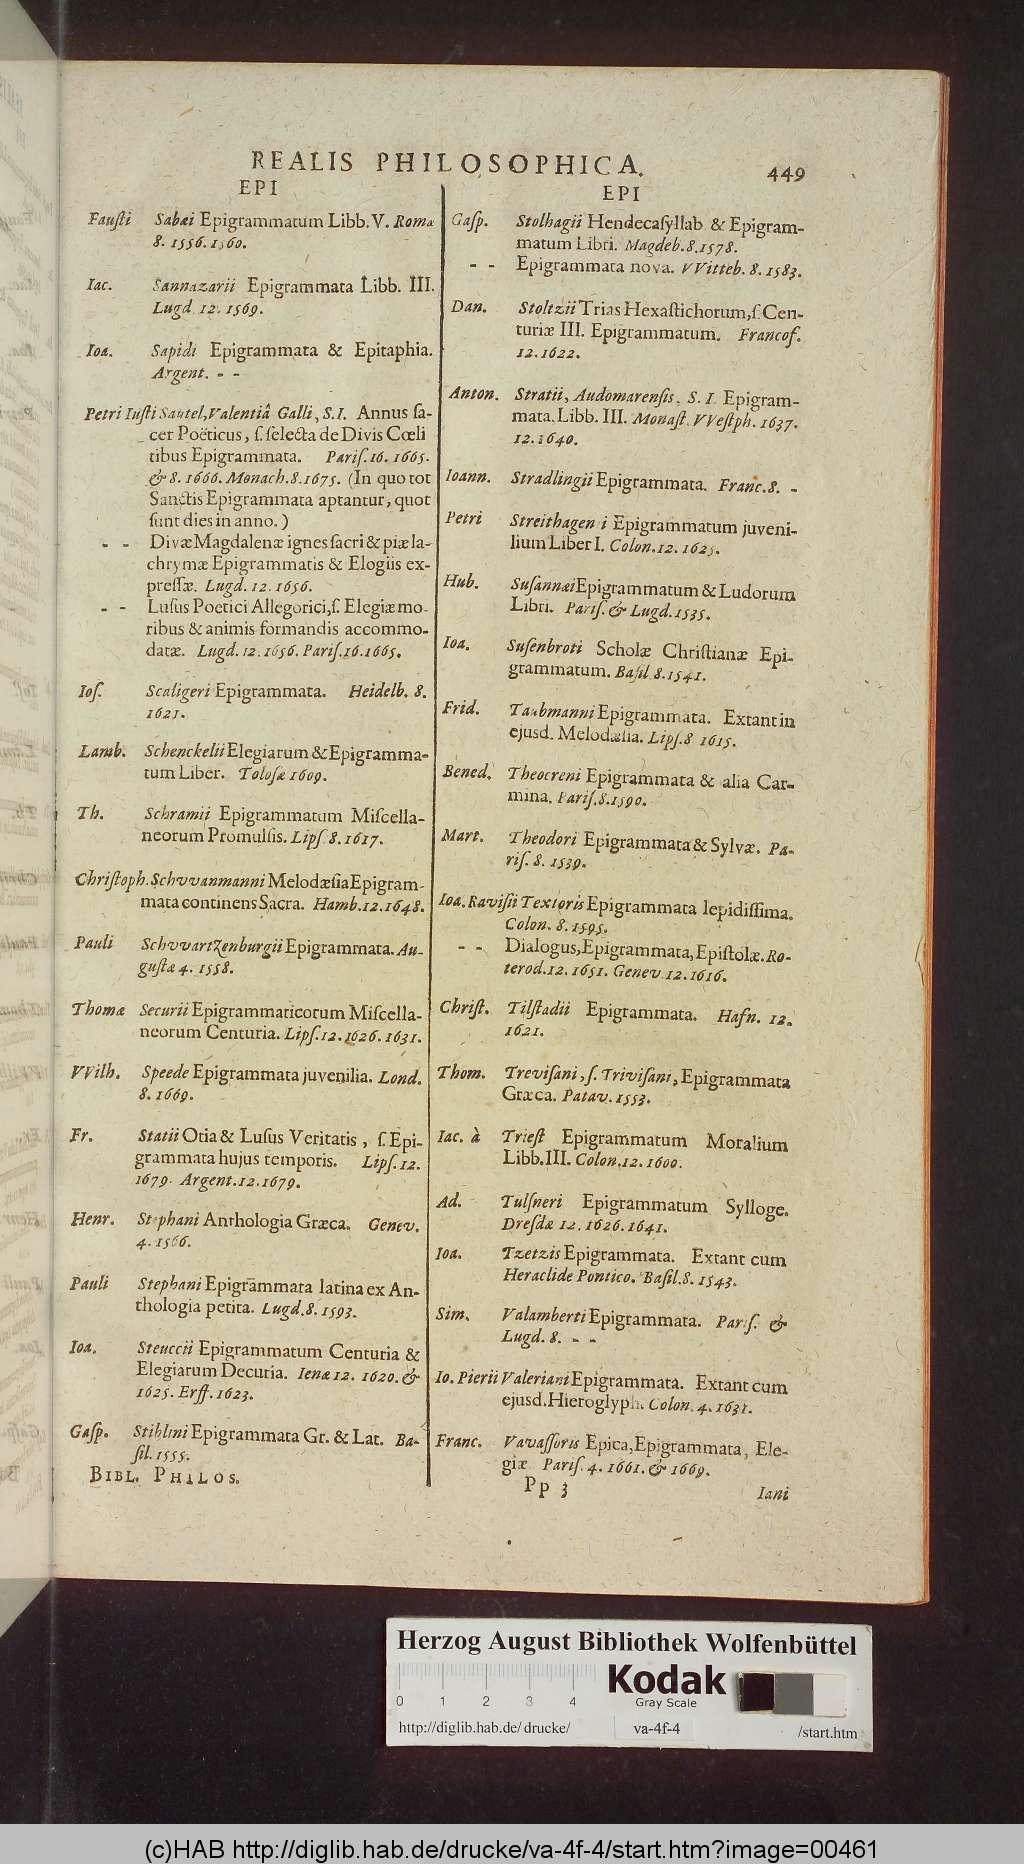 REALIS PHILOSOPHICA.
449
EPI
Fauſti Sabæi Epigrammatum Libb. V. Romæ
8. 1556. 1560.
Iac. Sannazarii Epigrammata Libb. III.
Lugd. 12. 1569.
Ioa. Sapidi Epigrammata & Epitaphia.
Argent. - -
Petri Iuſti Sautel, Valentiâ Galli, S. I. Annus ſa-
cer Poëticus, ſ. ſelecta de Divis Cœli
tibus Epigrammata. Pariſ. 16. 1665.
& 8. 1666. Monach. 8. 1675. (In quo tot
Sanctis Epigrammata aptantur, quot
ſunt dies in anno.)
- - Divæ Magdalenæ ignes ſacri & piæ la-
chrymæ Epigrammatis & Elogiis ex-
preſſæ. Lugd. 12. 1656.
- - Luſus Poetici Allegorici, ſ. Elegiæ mo-
ribus & animis formandis accommo-
datæ. Lugd. 12. 1656. Pariſ. 16. 1665.
Ioſ. Scaligeri Epigrammata. Heidelb. 8.
1621.
Lamb. Schenckelii Elegiarum & Epigramma-
tum Liber. Toloſæ 1609.
Th. Schramii Epigrammatum Miſcella-
neorum Promulſis. Lipſ. 8. 1617.
Chriſtoph. Schvvanmanni Melodæſia Epigram-
mata continens Sacra. Hamb. 12. 1648.
Pauli Schvvartzenburgii Epigrammata. Au-
guſtæ 4. 1558.
Thomæ Securii Epigrammaticorum Miſcella-
neorum Centuria. Lipſ. 12. 1626. 1631.
VVilh. Speede Epigrammata juvenilia. Lond.
8. 1669.
Fr. Statii Otia & Luſus Veritatis, ſ. Epi-
grammata hujus temporis. Lipſ. 12.
1679. Argent. 12. 1679.
Henr. Stephani Anthologia Græca. Genev.
4. 1566.
Pauli Stephani Epigrammata latina ex An-
thologia petita. Lugd. 8. 1593.
Ioa. Steuccii Epigrammatum Centuria &
Elegiarum Decuria. Ienæ 12. 1620. &
1625. Erff. 1623.
Gaſp. Stiblini Epigrammata Gr. & Lat. Ba-
ſil. 1555.
BIBL. PHILOS.
EPI
Gaſp. Stolhagii Hendecaſyllab & Epigram-
matum Libri. Magdeb. 8. 1578.
- - Epigrammata nova. VVitteb. 8. 1583.
Dan. Stoltzii Trias Hexaſtichorum, ſ. Cen-
turiæ III. Epigrammatum. Francof.
12. 1622.
Anton. Stratii, Audomarenſis, S. I. Epigram-
mata. Libb. III. Monaſt. VVeſtph. 1637.
12. 1640.
Ioann. Stradlingii Epigrammata. Franc. 8. -
Petri Streithagen i Epigrammatum juveni-
lium Liber I. Colon. 12. 1625.
Hub. Suſannæi Epigrammatum & Ludorum
Libri. Pariſ. & Lugd. 1535.
Ioa. Suſenbroti Scholæ Chriſtianæ Epi-
grammatum. Baſil 8. 1541.
Frid. Taubmanni Epigrammata. Extant in
ejusd. Melodæſia. Lipſ. 8 1615.
Bened. Theocreni Epigrammata & alia Car-
mina. Pariſ. 8. 1590.
Mart. Theodori Epigrammata & Sylvæ. Pa-
riſ. 8. 1539.
Ioa. Raviſii Textoris Epigrammata lepidiſſima.
Colon. 8. 1595.
- - Dialogus, Epigrammata, Epiſtolæ. Ro-
terod. 12. 1651. Genev. 12. 1616.
Chriſt. Tilſtadii Epigrammata. Hafn. 12.
1621.
Thom. Treviſani, ſ. Triviſani, Epigrammata
Græca. Patav. 1553.
Iac. à Trieſt Epigrammatum Moralium
Libb. III. Colon. 12. 1600.
Ad. Tulſneri Epigrammatum Sylloge.
Dreſdæ 12. 1626. 1641.
Ioa. Tzetzis Epigrammata. Extant cum
Heraclide Pontico. Baſil. 8. 1543.
Sim. Valamberti Epigrammata. Pariſ. &
Lugd. 8. - -
Io. Pierii Valeriani Epigrammata. Extant cum
ejusd. Hieroglyph. Colon. 4. 1631.
Franc. Vavaſſoris Epica, Epigrammata, Ele-
giæ Pariſ. 4. 1661. & 1669.
Pp 3
Iani
Herzog August Bibliothek Wolfenbüttel
Kodak
Gray Scale
0 1 2 3 4
http://diglib.hab.de/drucke/
va-4f-4
/start.htm
(c)HAB http://diglib.hab.de/drucke/va-4f-4/start.htm?image=00461